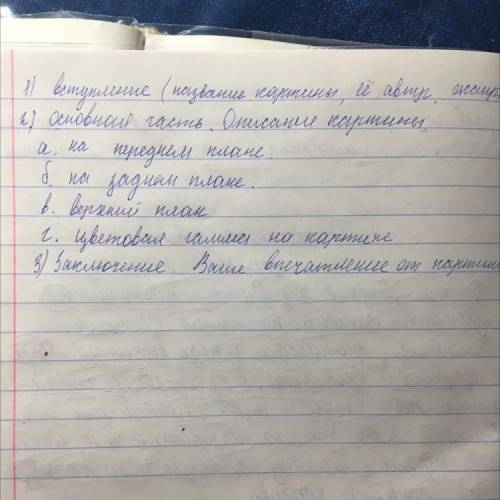 1) вступление (название картины, её автр,
2) основная часть. Описание картины
а. на переднем плане.
б. на заднем плане.
в. верхний план
г. цветовая гамма на картине
3) Заключение. Ваше впечатление от картин